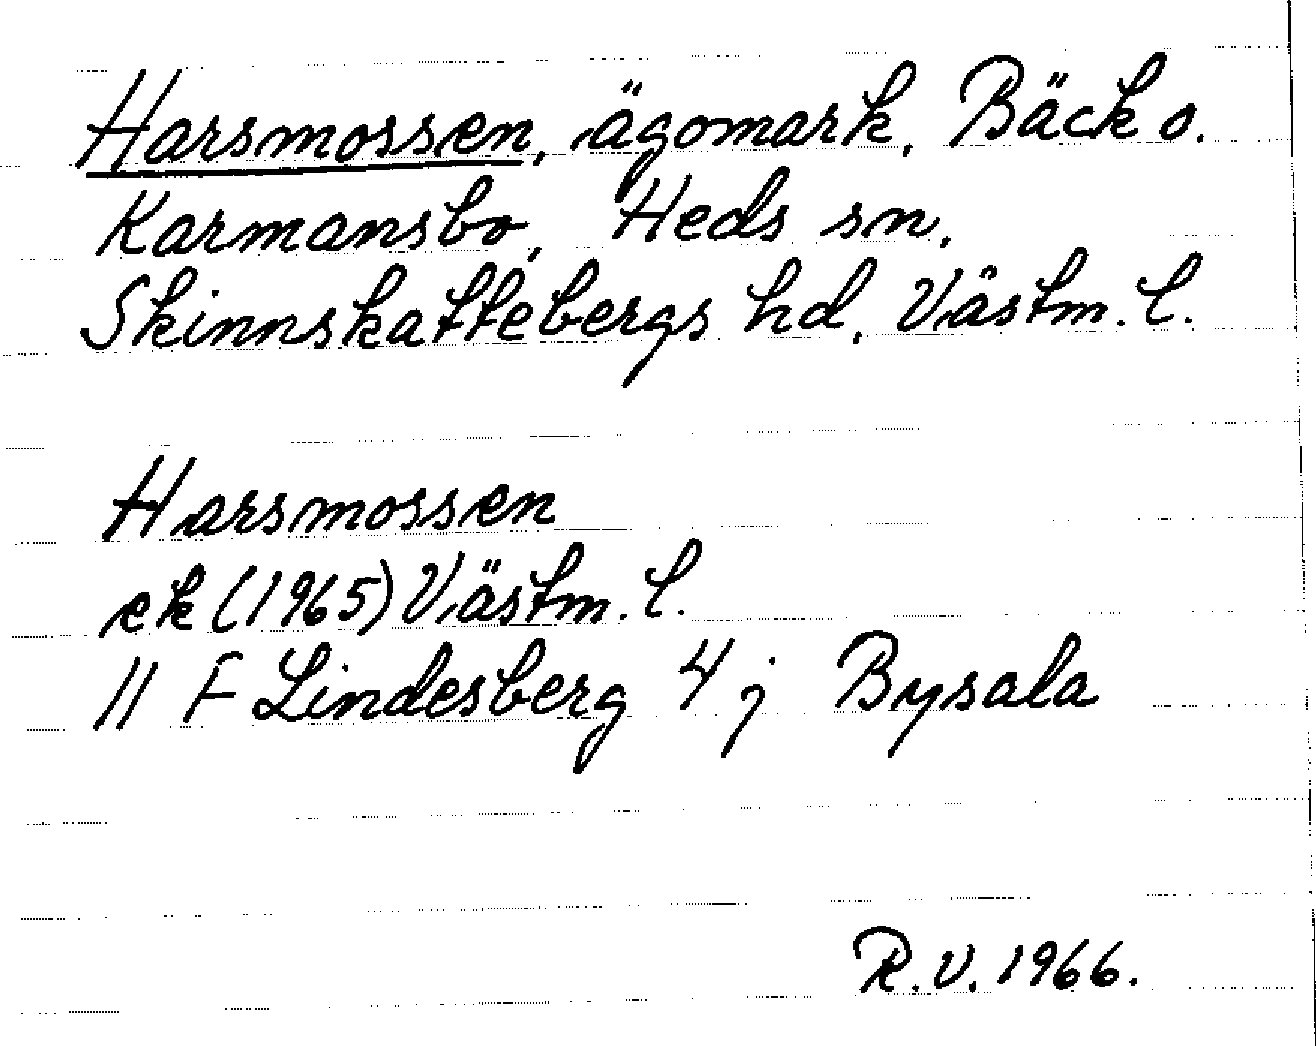 Harsmossen, ägomark, Bäck o.
Karmansbo, Heds sn,
Skinnskattebergs hd, Västm. l.
Harsmossen
ek (1965) Västm. l.
11 F Lindesberg 4 j Bysala
R.V. 1966.